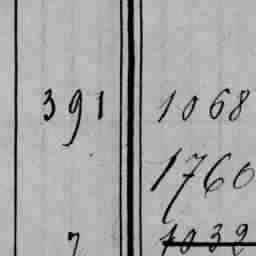 391 1068
1760
7 1039